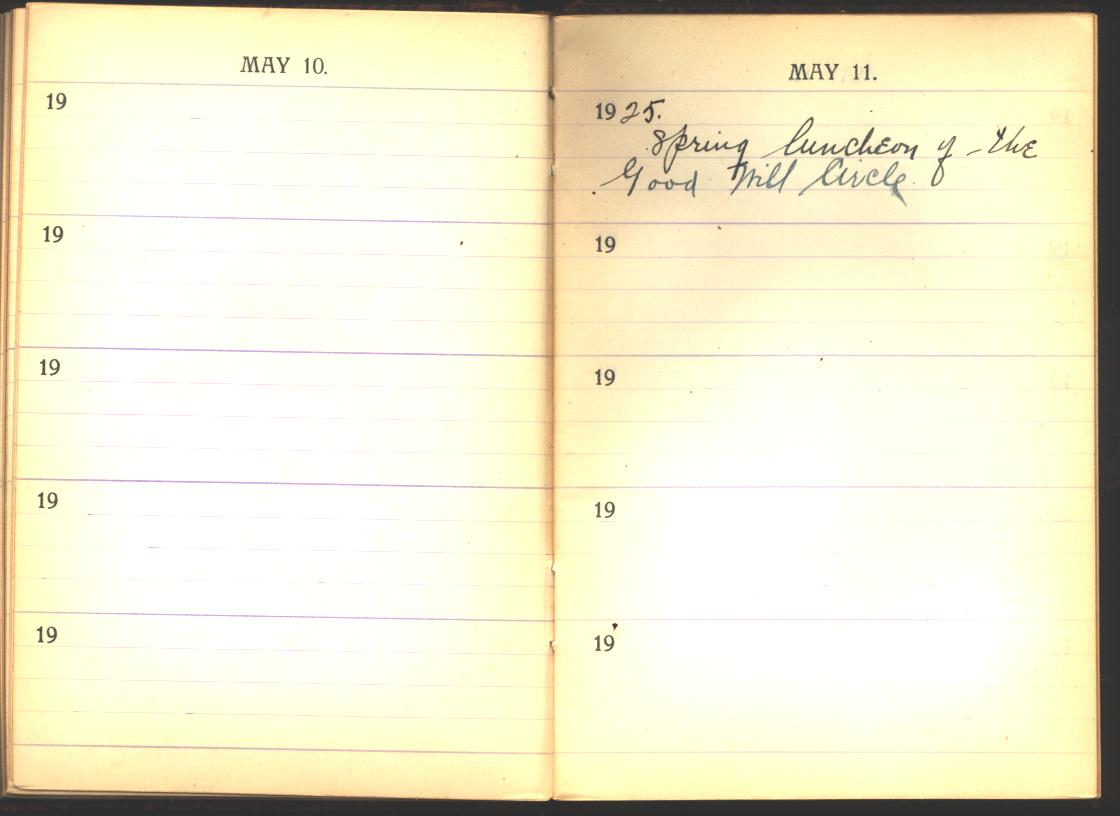 MAY 10.
19
19
19
19
19
MAY 11.
1925.
Spring luncheon of the
Good Will Circle.
19
19
19
19